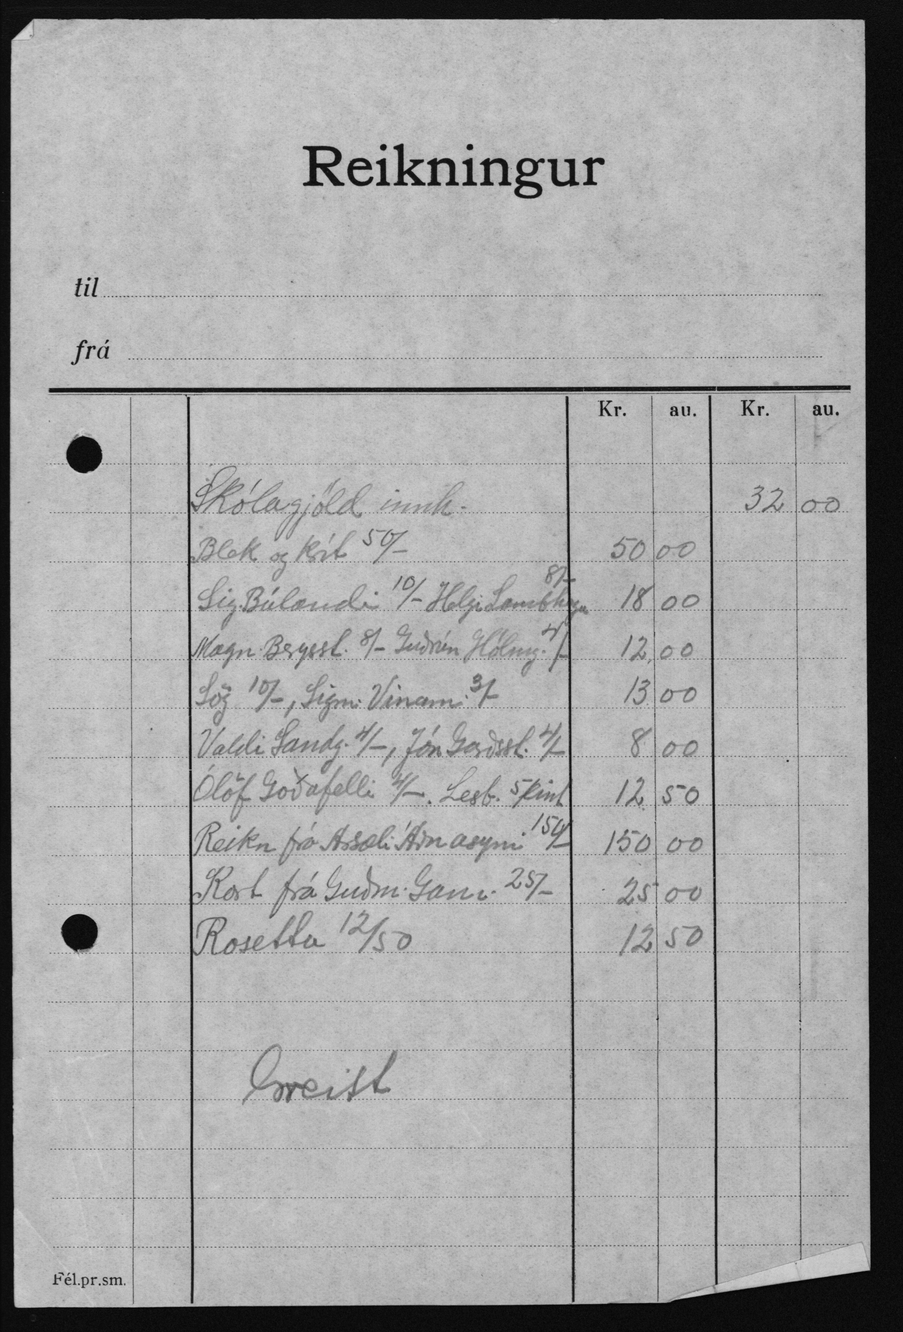 Reikningur
til
frá
Kr. au. Kr. au.
Skólagjöld innh. 32 00
Blek og krít 50/- 50 00
Sig. Búlandi 10/- Helgi 8/- 18 00
Magn. Bergsst. 8/- Guðrún Hólmg. 4/- 12 00
10/-, Sigm. 3/- 13 00
Valdi Sandg. 4/-, Jón 4/- 8 00
Ólöf Goðafelli 4/-. Lesb. 12 50
Reikn frá Ársæli Árnasyni 150/- 150 00
Kort frá Guðm. Gam. 25/- 25 00
Rosetta 12/50 12 50
Greist
Fél.pr.sm.